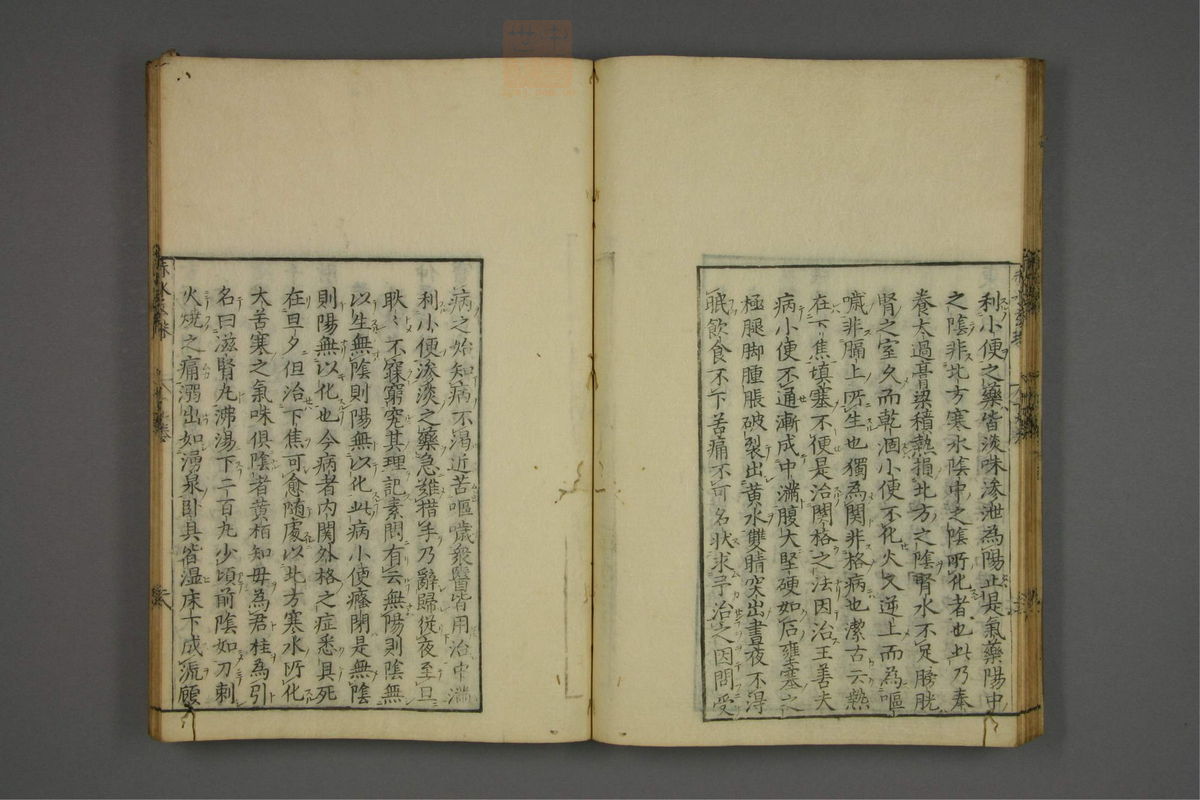 利小便之藥皆淡味滲泄為陽止是氣藥陽中
之陰非北方寒水陰中之陰所化者也此乃奉
養太過膏粱積熱損北方之陰腎水不足膀胱
腎之室久而乾涸小便不化火又逆上而為嘔
噦非膈上所生也獨為関非格病也潔古云熱
在下焦填塞不便是治関格之法因治王善夫
病小便不通漸成中滿腹大堅硬如石壅塞之
極腿脚腫脹破裂出黄水雙睛突出晝夜不得
眠飲食不下苦痛不可名状求予治之因問受
病之始知病不渴近苦嘔噦衆醫皆用治中滿
利小便滲淡之藥急難措手乃辭歸從夜至旦
耿〻不寐窮究其理記素問有云無陽則陰無
以生無陰則陽無以化此病小便癃閉是無陰
則陽無以化也今病者内関外格之症悉具死
在旦夕但治下焦可愈随處以北方寒水所化
大苦寒之氣味俱陰者黄栢知母為君桂為引
名曰滋腎丸沸湯下二百丸少頃前陰如刀刺
火燒之痛溺出如湧泉卧具皆湿床下成流顧